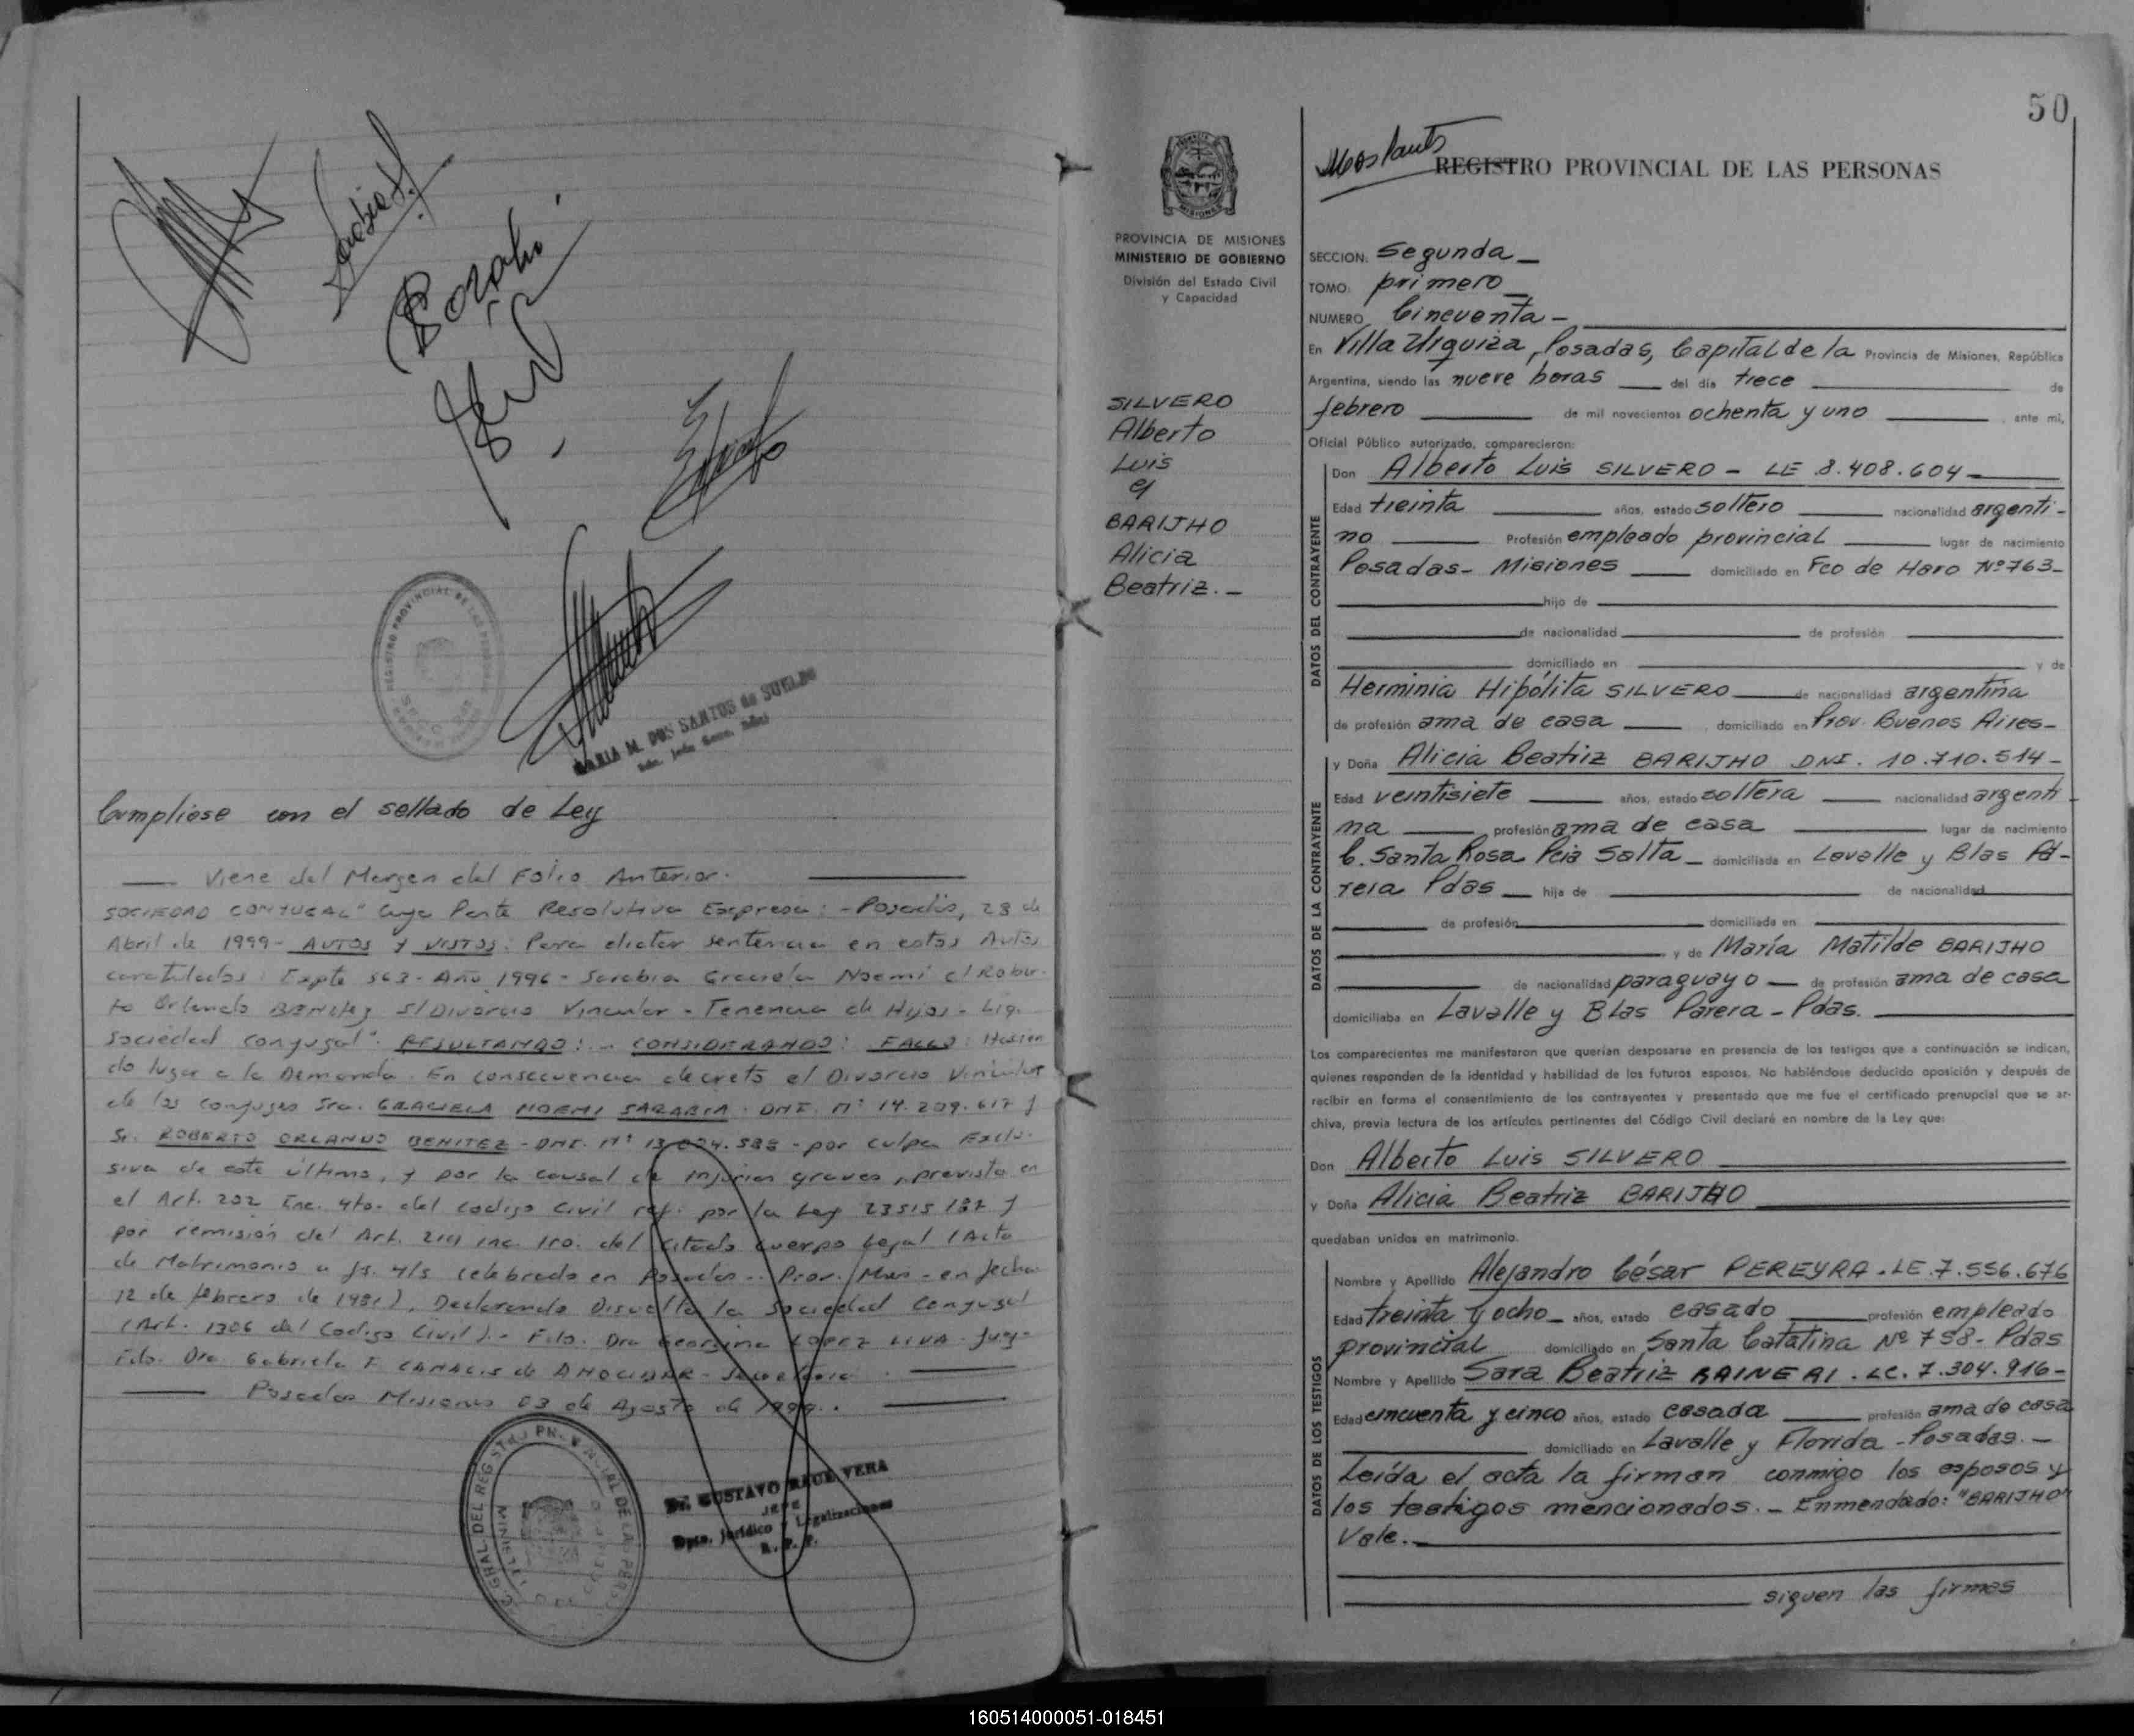 Cumpliose con el sellado de Ley
Viene del Margen del Folio Anterior.
SOCIEDAD CONYUGAL" Cuya Parte Resolutiva Expresa: - Posadas, 28 de
Abril de 1999 - AUTOS Y VISTOS: Para dictar sentencia en estos Autos
caratulados: Expte 563 - Año 1996 - Sarabia Graciela Noemi c/ Rober-
to Orlando BENITEZ S/Divorcio Vincular - Tenencia de Hijos - Liq.
Sociedad Conyugal". RESULTANDO: - CONSIDERANDO: FALLO: Hacien
do lugar a la Demanda. En consecuencia decreto el Divorcio Vincular
de los conyuges Sra. GRACIELA NOEMI SARABIA - DNI. Nº 14.209.617 y
Sr. ROBERTO ORLANDO BENITEZ - DNI. Nº 13.004.588 - por culpa Exclu-
siva de este último, y por la causal de injurias graves, prevista en
el Art. 202 Inc. 4to. del Codigo Civil ref. por la Ley 23515/87 y
por remisión del Art. 214 inc. 1ro. del citado cuerpo Legal (Acta
de Matrimonio a fs. 4/5 celebrado en Posadas - Prov. Mnes - en fecha
12 de febrero de 1981), Declarando Disuelta la Sociedad Conyugal
(Art. 1306 del Codigo Civil). - Fdo. Dra Georgina LOPEZ LIVA - Juez -
Fdo. Dra. Gabriela F. CANALIS de AMOCIDAR - Secretaria.
Posadas Misiones 03 de Agosto de 1999..
MARIA M. DOS SANTOS de SUELDO
Dr. GUSTAVO RAUL VERA
JEFE
Dpto. Jurídico y Legalizaciones
R. P. P.
50
REGISTRO PROVINCIAL DE LAS PERSONAS
PROVINCIA DE MISIONES
MINISTERIO DE GOBIERNO
División del Estado Civil
y Capacidad
SILVERO
Alberto
Luis
c/
BARIJHO
Alicia
Beatriz. -
SECCION: Segunda -
TOMO: primero -
NUMERO Cincuenta -
En Villa Urquiza, Posadas, Capital de la Provincia de Misiones, República
Argentina, siendo las nueve horas del día trece de
febrero de mil novecientos ochenta y uno, ante mí,
Oficial Público autorizado, comparecieron:
DATOS DEL CONTRAYENTE
Don Alberto Luis SILVERO - LE 8.408.604 -
Edad treinta años, estado soltero nacionalidad argenti-
no Profesión empleado provincial lugar de nacimiento
Posadas - Misiones domiciliado en Fco de Haro Nº 763 -
hijo de
de nacionalidad de profesión
domiciliado en y de
Herminia Hipólita SILVERO de nacionalidad argentina
de profesión ama de casa, domiciliado en Prov. Buenos Aires -
DATOS DE LA CONTRAYENTE
y Doña Alicia Beatriz BARIJHO DNI. 10.710.514 -
Edad veintisiete años, estado soltera nacionalidad argenti-
na profesión ama de casa lugar de nacimiento
C. Santa Rosa Pcia Salta - domiciliada en Lavalle y Blas Pa-
rera Pdas - hija de de nacionalidad
de profesión domiciliada en
y de María Matilde BARIJHO
de nacionalidad paraguayo - de profesión ama de casa
domiciliaba en Lavalle y Blas Parera - Pdas.
Los comparecientes me manifestaron que querían desposarse en presencia de los testigos que a continuación se indican,
quienes responden de la identidad y habilidad de los futuros esposos. No habiéndose deducido oposición y después de
recibir en forma el consentimiento de los contrayentes y presentado que me fue el certificado prenupcial que se ar-
chiva, previa lectura de los artículos pertinentes del Código Civil declaré en nombre de la Ley que:
Don Alberto Luis SILVERO
y Doña Alicia Beatriz BARIJHO
quedaban unidos en matrimonio.
DATOS DE LOS TESTIGOS
Nombre y Apellido Alejandro César PEREYRA - LE 7.556.676
Edad treinta y ocho - años, estado casado profesión empleado
provincial domiciliado en Santa Catalina Nº 758 - Pdas
Nombre y Apellido Sara Beatriz RAINERI - LC. 7.304.916 -
Edad cincuenta y cinco años, estado casada profesión ama de casa
domiciliado en Lavalle y Florida - Posadas. -
Leída el acta la firman conmigo los esposos y
los testigos mencionados. - Enmendado: "BARIJHO"
Vale. -
siguen las firmas
160514000051-018451